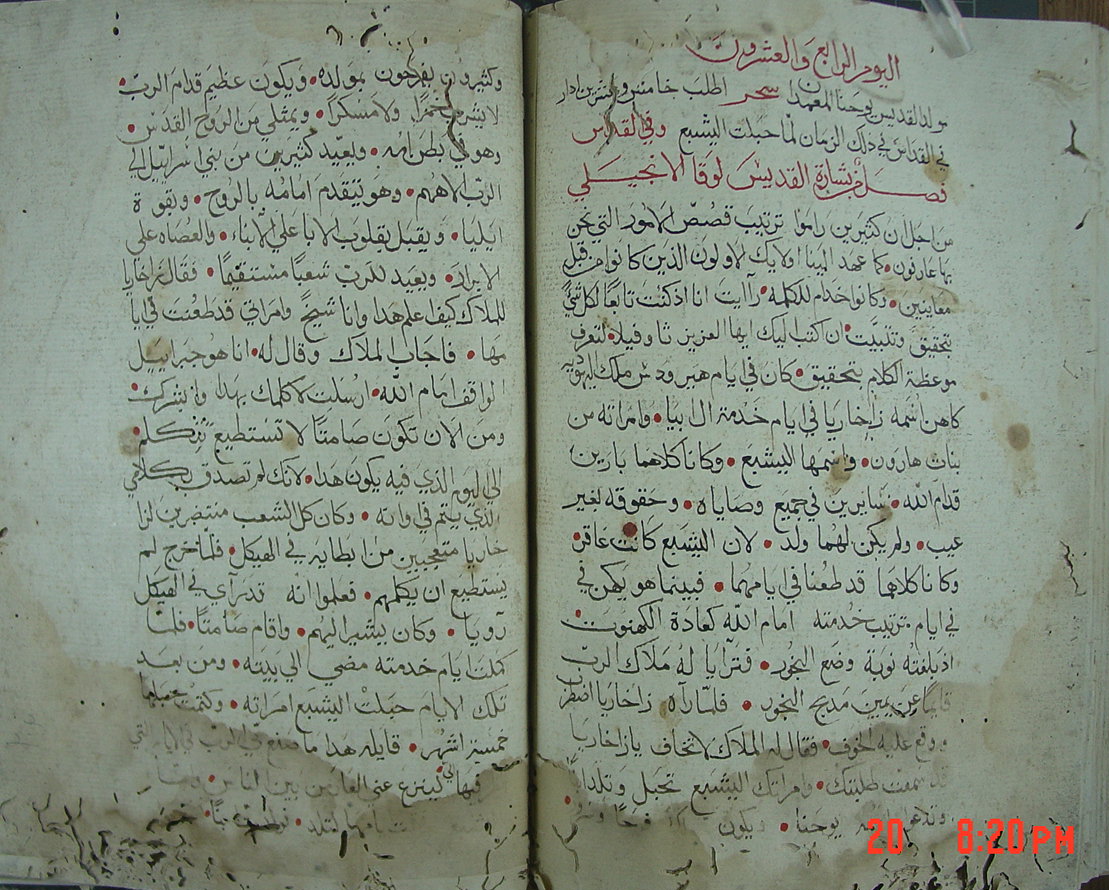 اليوم الرابع والعشرون
مولد القديس يوحنا المعمدان سحر اطلب خامس وعشرين ادار
في القداس في ذلك الزمان لما حبلت اليشبع وفي القداس
فصل من بشارة القديس لوقا الانجيلي
من اجل ان كثيرين راموا ترتيب قصص الامور التي نحن
بها عارفون • كما عهد الينا اولايك الاولون الذين كانوا من قبل
معاينين • وكانوا خدام للكلمه • رآيت انا اذ كنت تابعا لكل شي
بتحقيق وتثبيت • ان اكتب اليك ايها العزيز تاوفيلا • لتعرف
موعظة الكلام بتحقيق • كان في ايام هيرودس ملك اليهوديه
كاهن اسمه زاخاريا في يام خدمة ال ابيا • وامراته من
بنات هارون • واسمها اليشبع • وكانا كلاهما بارين
قدام الله • سايرين في جميع وصاياه • وحقوقه لغير
عيب • ولم يكن لهما ولد • لان اليشبع كانت عاقر
وكانا كلاهما قد طعنا في يامهما • فبينما هو يكهن في
في ايام ترتيب خدمته امام الله كعادة الكهنوت •
اذ بلغته نوبة وضع البخور • فترايا له ملاك الرب
قايما عن يمين مدبح البخور • فلما رآه زاخاريا اضطرب
ووقع عليه الخوف • فقال له الملاك لا تخاف يا زاخاريا
قد سمعت طلبتك • وامراتك اليشبع تحبل وتلد ابنا
وتدعو يوحنا • ويكون لك فرحا
وكثيرون يفرحون بمولده • ويكون عظيم قدام الرب
لا يشرب خمرا ولا مسكرا • ويمتلي من الروح القدس •
وهو في بطن امه • ويعيد كثيرين من بني اسراييل الى
الرب الاههم • وهو يتقدم امامه بالروح • وبقوة
ايليا • ويقبل بقلوب الابا على الابناء • والعصاه على
الابرار • ويعيد للرب شعبا مستقيما • فقال زاخاريا
للملاك كيف اعلم هدا وانا شيخ وامراتي قد طعنت في ايا
مها • فاجاب لملاك وقال له • انا هو جبراييل
لواقف امام الله • ارسلت لاكلمك بهدا وابشرك •
ومن الان تكون صامتا لا تستطيع تتكلم •
الى ليوم الذي فيه يكون هدا • لانك لم تصدق بكلامي
الذي يتم في اوانه • وكان كل الشعب منتضرين لزا
خاريا متعجبين من ابطايه في الهيكل • فلما خرج لم
يستطيع ان يكلمهم • فعلموا انه قد رآي في الهيكل
رويا • وكان يشير اليهم • واقام صامتا • فلما
كملت يام خدمته مضي الى بيته • ومن بعد
تلك الايام حبلت اليشبع امراته • وكتمت حبلها
خمسة اشهر • قايله هدا ما صنع بي الرب في الايام التي
فيها لينزع عني العار من بين الناس •
لتلد •
20 8:20PM